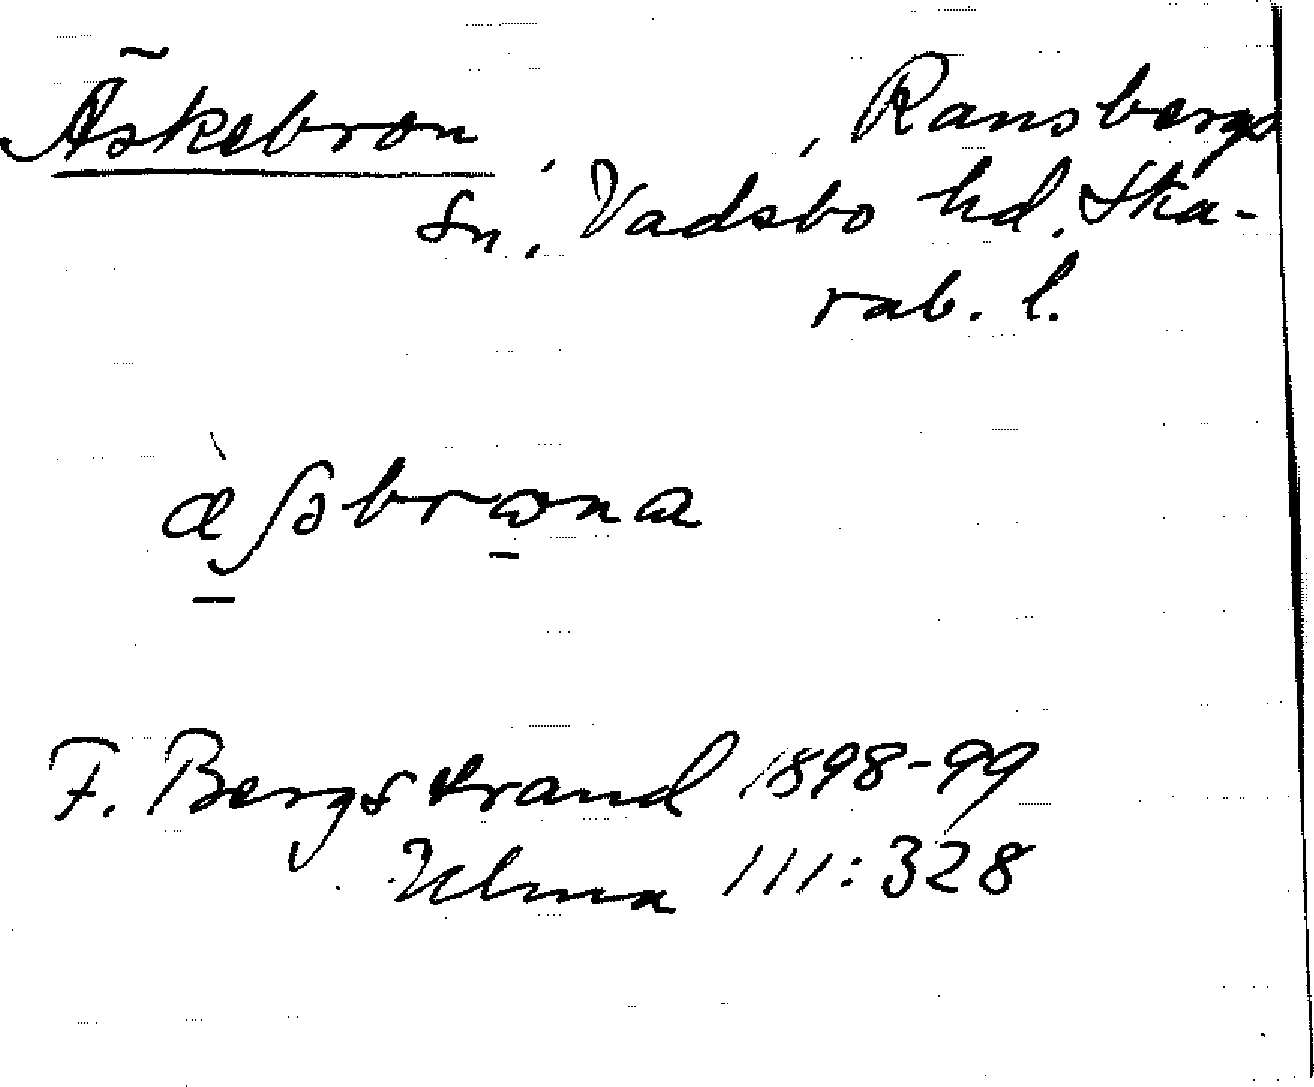 Äskebron, , Ransbergs
sn, Vadsbo hd. Ska-
rab. l.
æ̀ʃəbrɷna
F. Bergstrand 1898-99
Ulma 111:328